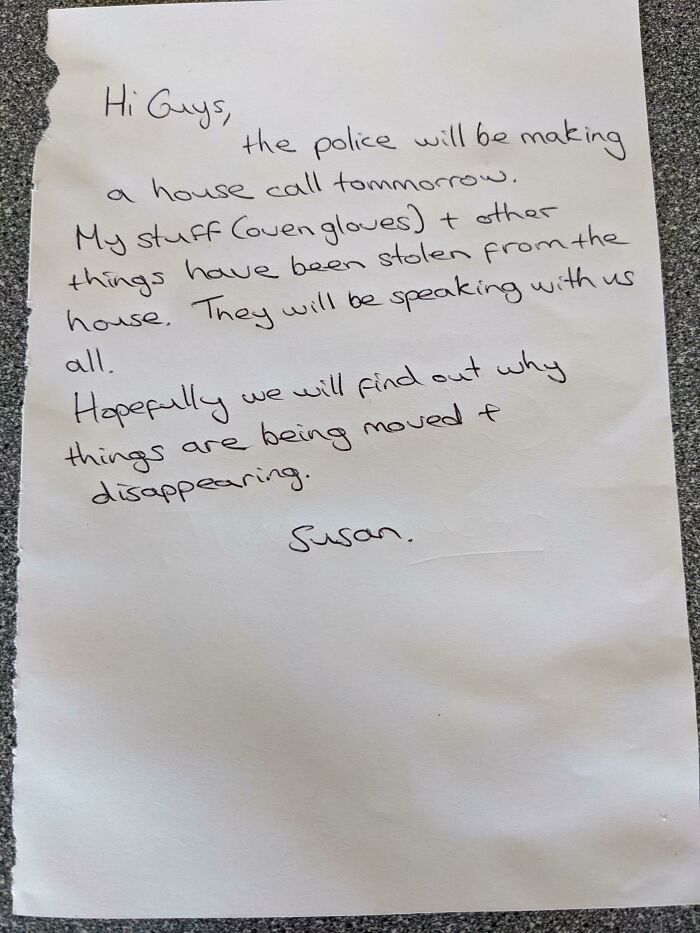 Hi Guys,
the police will be making
a house call tommorrow.
My stuff (oven gloves) + other
things have been stolen from the
house. They will be speaking with us
all.
Hopefully we will find out why
things are being moved +
disappearing.
Susan.